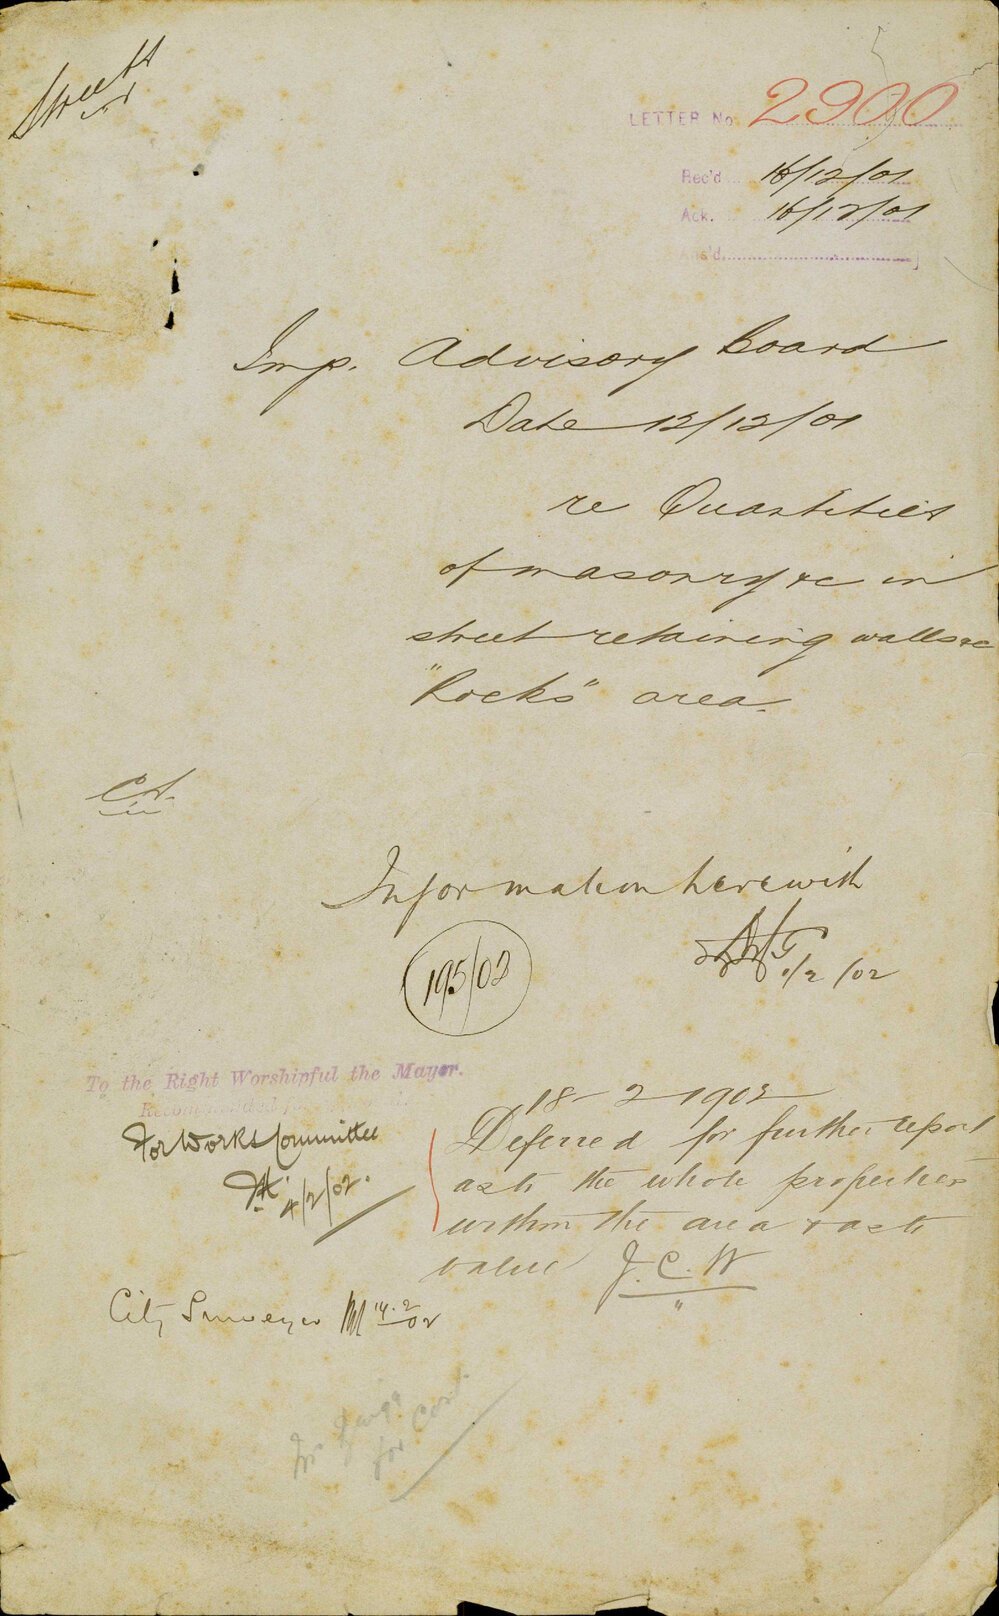 Streets
LETTER No. 2900
Rec'd 16/12/01
Ack. 16/12/01
Ans'd
Imp. Advisory Board
Date 12/12/01
re Quantities
of masonry &c in
street retaining walls &c
"Rocks" area.
C.S.
Information herewith
1/2/02
195/02
To the Right Worshipful the Mayor.
Recommended
For Works Committee
4/2/02.
18-2-1902
Deferred for further report
as to the whole properties
within the area & as to
value J.C.W
City Surveyor 14.2.02
Mr
for